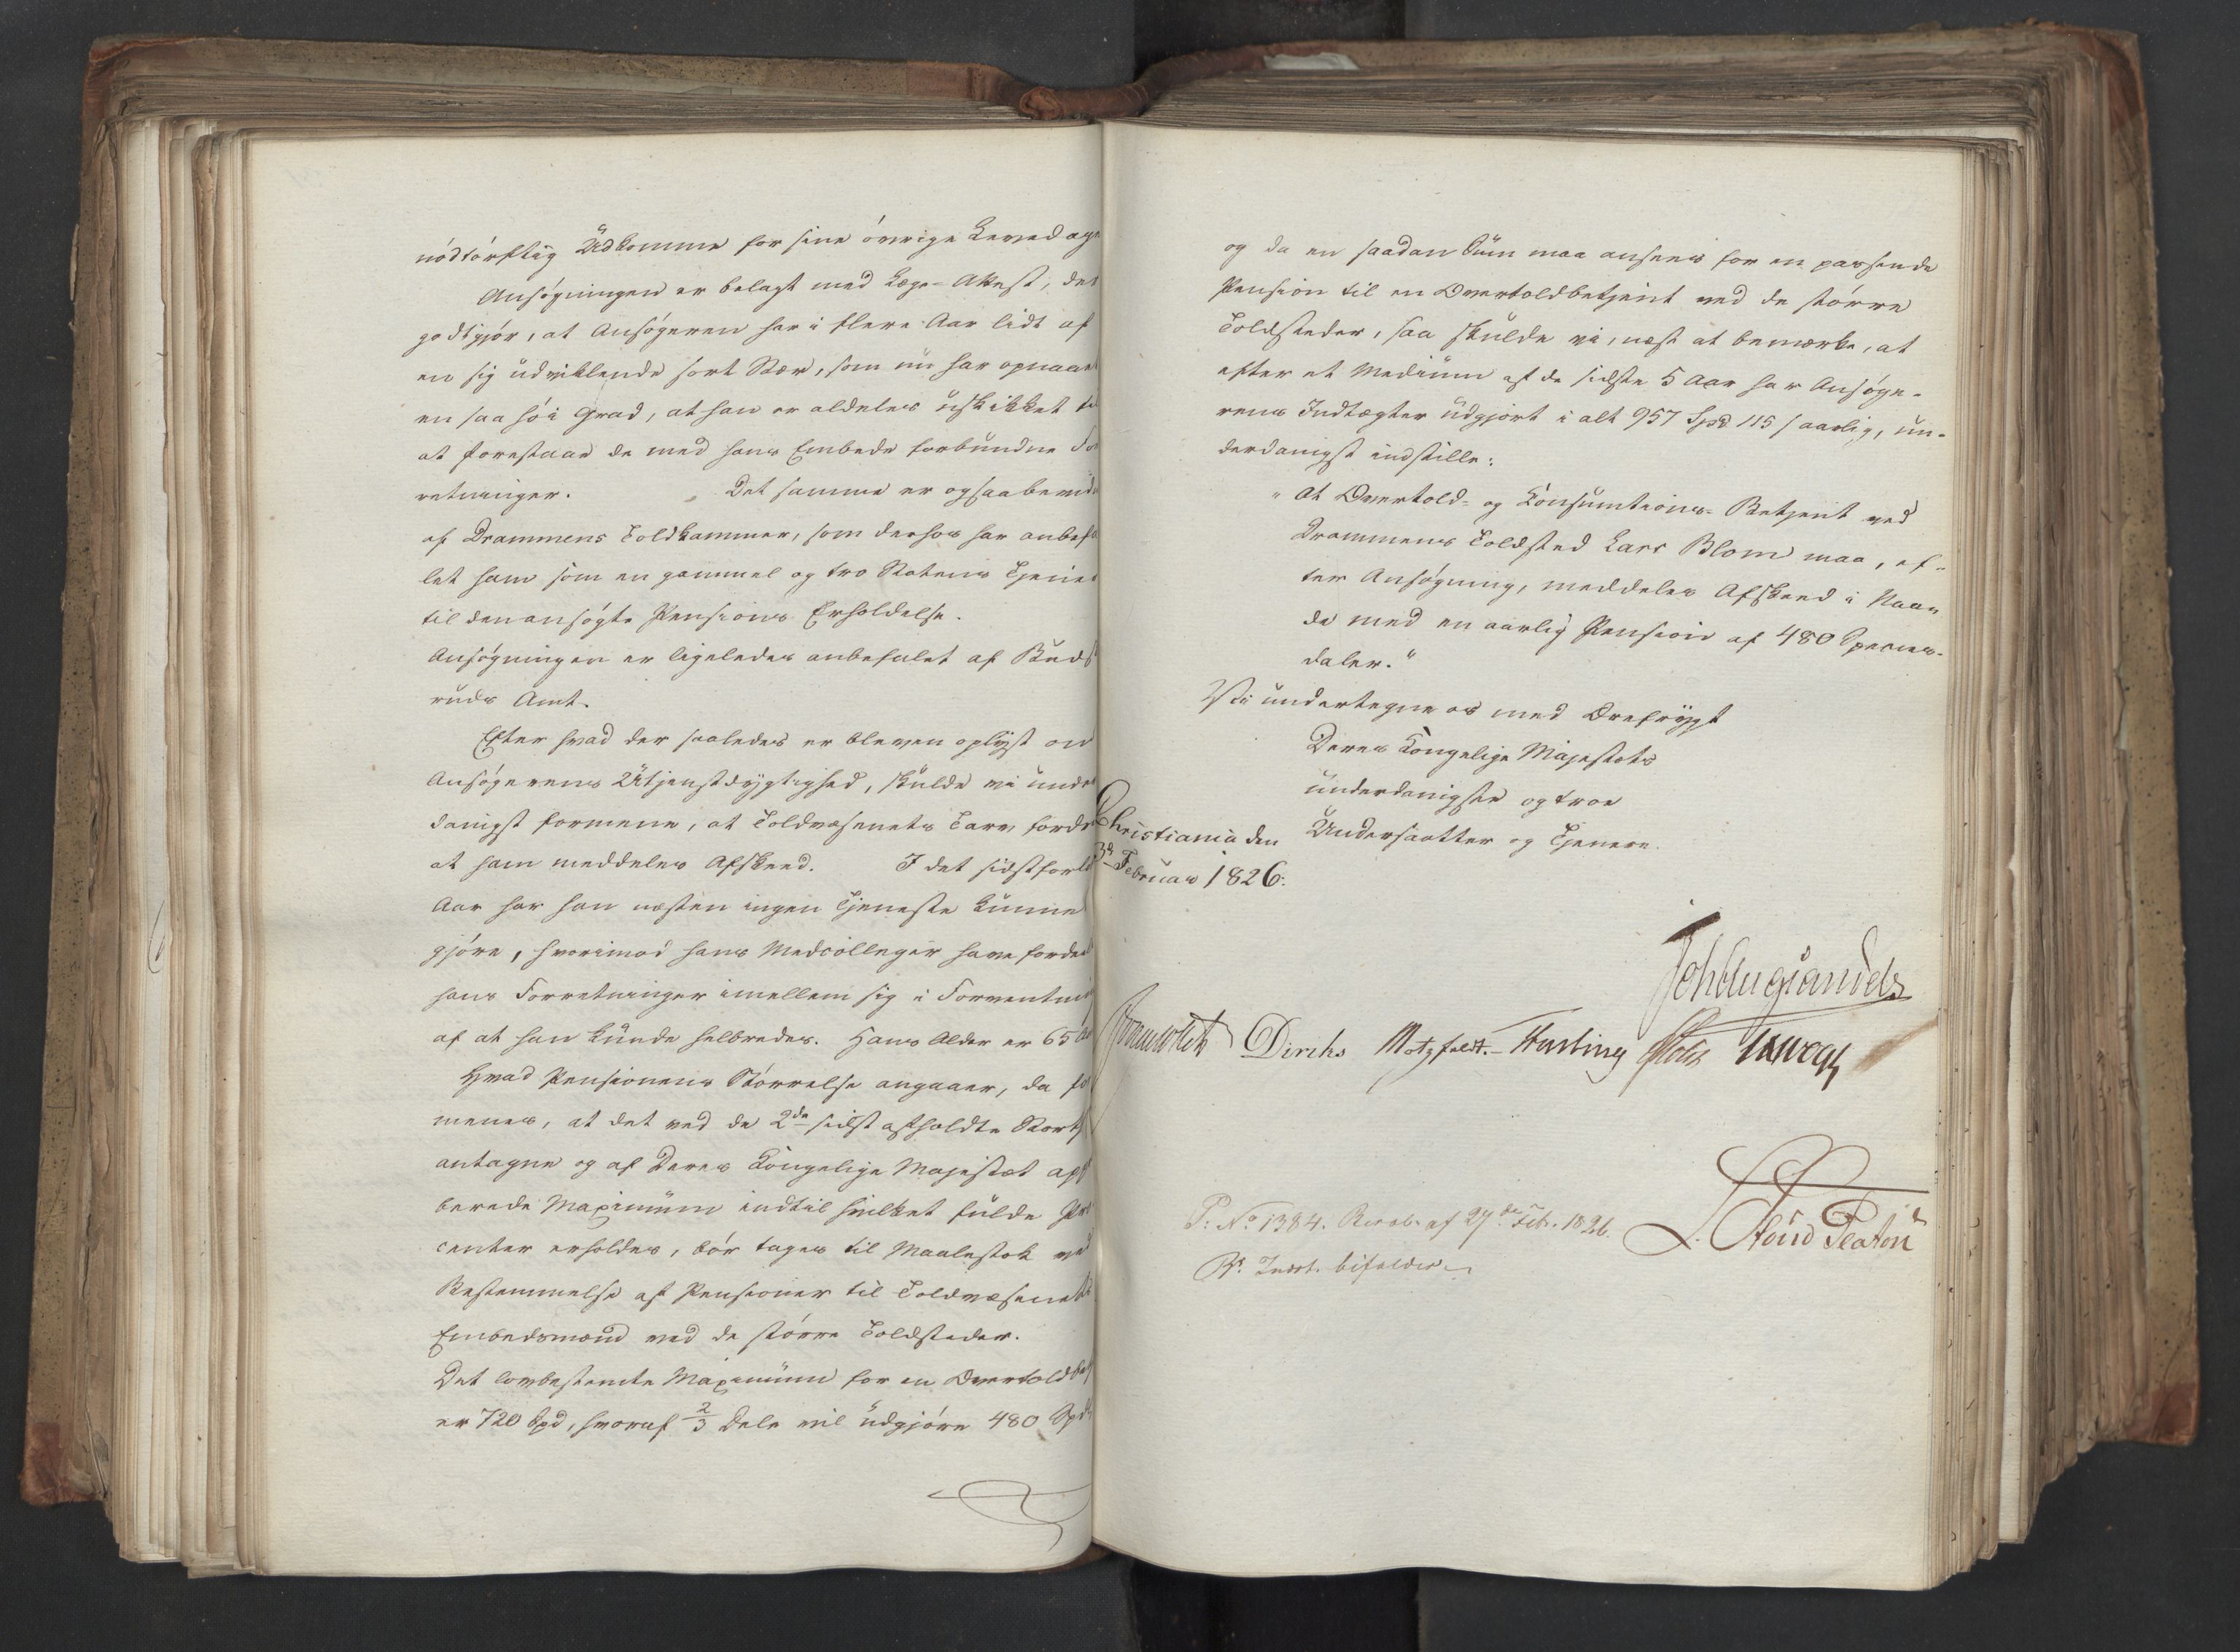 nödtörftig Udkomme for sine övrige Levedage
Ansögningen er belagt med Læge-Attest, der
godtgjör, at Ansögeren har i flere Aar lidt af
en sig udviklende sort Stær, som nu har opnaaet
en saa höi Grad, at han er aldeles uskikket til
at forestaae de med hans Embede forbundne For
retninger. Det samme er ogsaa bevid
af Drammens Toldkammer, som derhos har anbefa
let ham som en gammel og tro Statens Tjener
til den ansögte Pensions Erholdelse.
Ansögningen er ligeledes anbefalet af Budsk
ruds Amt.
Efter hvad der saaledes er bleven oplyst om
Ansögerens Utjenstdygtighed, skulde vi under
danigst formene, at Toldvæsenets Tarv fordre
at ham meddeles Afskeed. I det sidstforlö
Aar har han næsten ingen Tjeneste kunnet
gjöre, hvorimod hans Medcolleger have fordeelt
hans Forretninger imellem sig i Forventning
af at han kunde helbredes. Hans Alder er 65 Aar
Hvad Pensionens Störrelse angaaer, da for
menes, at det ved de 2de sidst afholdte Storth
antagne og af Deres Kongelige Majestæt app
berede Maximum indtil hvilket fulde Pro
center erholdes, bör tages til Maalestok ved
Bestemmelse af Pensioner til Toldvæsenets
Embedsmænd ved de större Toldsteder.
Det lovbestemte Maximum for en Overtoldbetj
er 720 Spd, hvoraf 2/3 Dele vil udgjöre 480 Spd
og da en saadan Sum maa ansees for en passende
Pension til en Overtoldbetjent ved de större
Toldsteder, saa skulde vi, næst at bemærke, at
efter et Medium af de sidste 5 Aar har Ansöge-
rens Indtægter udgjort i alt 957 Spd 115 s aarlig, un-
derdanigst indstille:
"At Overtold- og Consumtions-Betjent ved
Drammens Toldsted Lars Blom maa, ef-
ter Ansögning, meddeles Afskeed i Naa-
de med en aarlig Pension af 480 Species-
daler."
Vi undertegne os med Ærefrygt
Deres Kongelige Majestæts
underdanigste og troe
Undersaatter og Tjenere.
Christiania den
3d Februar 1826.
Joh Aug Sandels
Diriks Motzfeldt. Krog
L. Stoud Platou
P: No 1384. Resol. af 27de Feb. 1826.
Rs. Indst. bifaldes